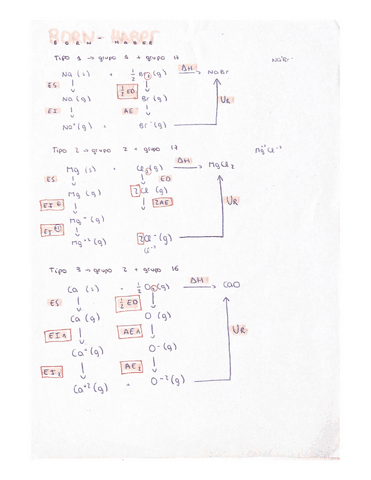 BORN - HABER
BORN - HABER
Tipo 1 → grupo 1 + grupo 17
Na⁺Br⁻
Na (s) + 1/2 Br₂ (g) ΔH → NaBr
ES ↓ 1/2 ED ↓
Na (g) Br (g) UR
EI ↓ AE ↓
Na⁺ (g) + Br⁻ (g)
Tipo 2 → grupo 2 + grupo 17
Mg (s) + Cl₂ (g) ΔH → MgCl₂
ES ↓ ↓ ED
Mg (g) 2Cl (g)
↓ ↓ 2AE UR
Mg⁺ (g)
↓
Mg⁺² (g) 2Cl⁻ (g)
Cl⁻
Tipo 3 → grupo 2 + grupo 16
Ca (s) + 1/2 O₂ (g) ΔH → CaO
ES ↓ 1/2 ED ↓
Ca (g) O (g)
EI₁ ↓ AE₁ ↓ UR
Ca⁺ (g) O⁻ (g)
EI₂ ↓ AE₂ ↓
Ca⁺² (g) + O⁻² (g)